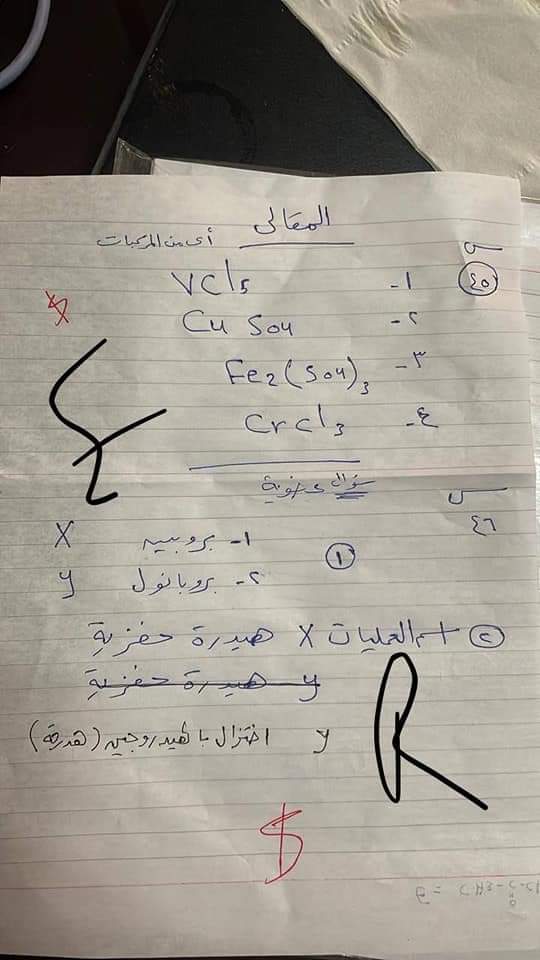 المقالى
أى من المركبات
س ٤٥
١- VCl5
٢- Cu SO4
٣- Fe2(SO4)3
٤- CrCl3
$
سؤال عضوية
س ٤٦
١ ١- بروبين X
٢- بروبانول y
٢ اسم العمليات X هيدرة حفزية
y هيدرة حفزية
y اختزال بالهيدروجين (هدرجة)
R
$